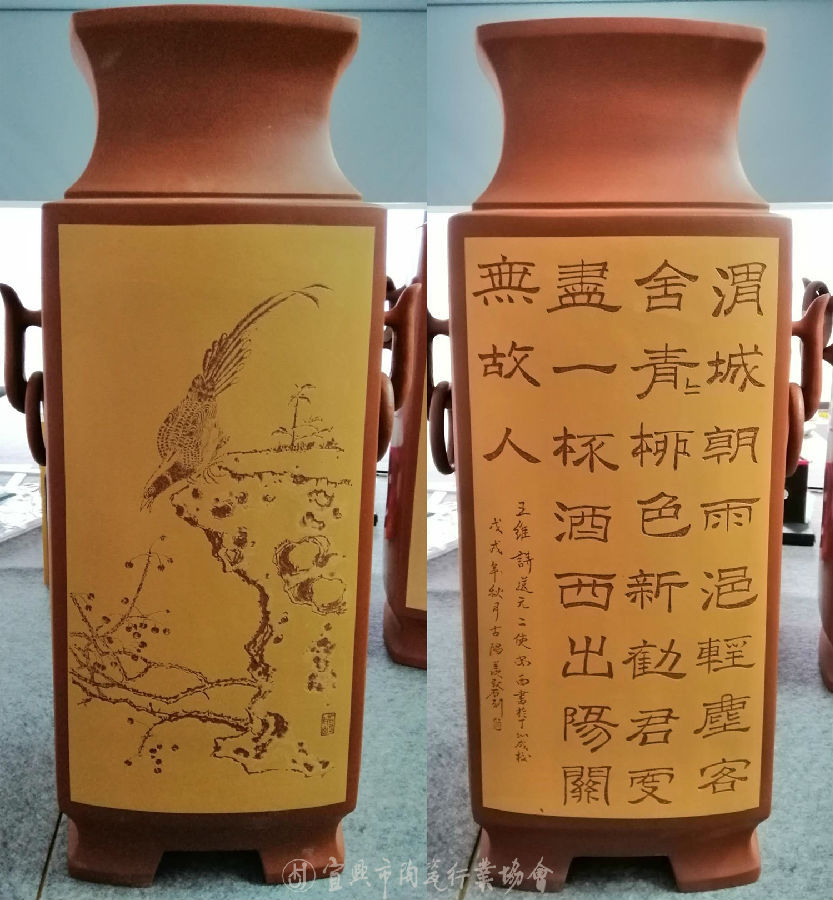 渭城朝雨浥輕塵客
舍青〻柳色新勸君更
盡一杯酒西出陽關
無故人
王維詩送元二使安西書於丁山
戊戌年秋月古陽羨
宜興市陶瓷行業協會